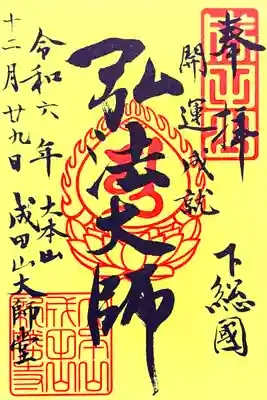 奉拝
開運成就
下総國
弘法大師
令和六年
十二月廿九日
大本山
成田山大師堂